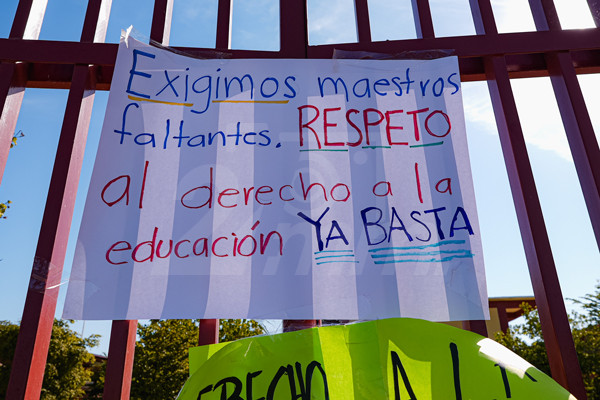 Exigimos maestros
faltantes. RESPETO
al derecho a la
educación YA BASTA